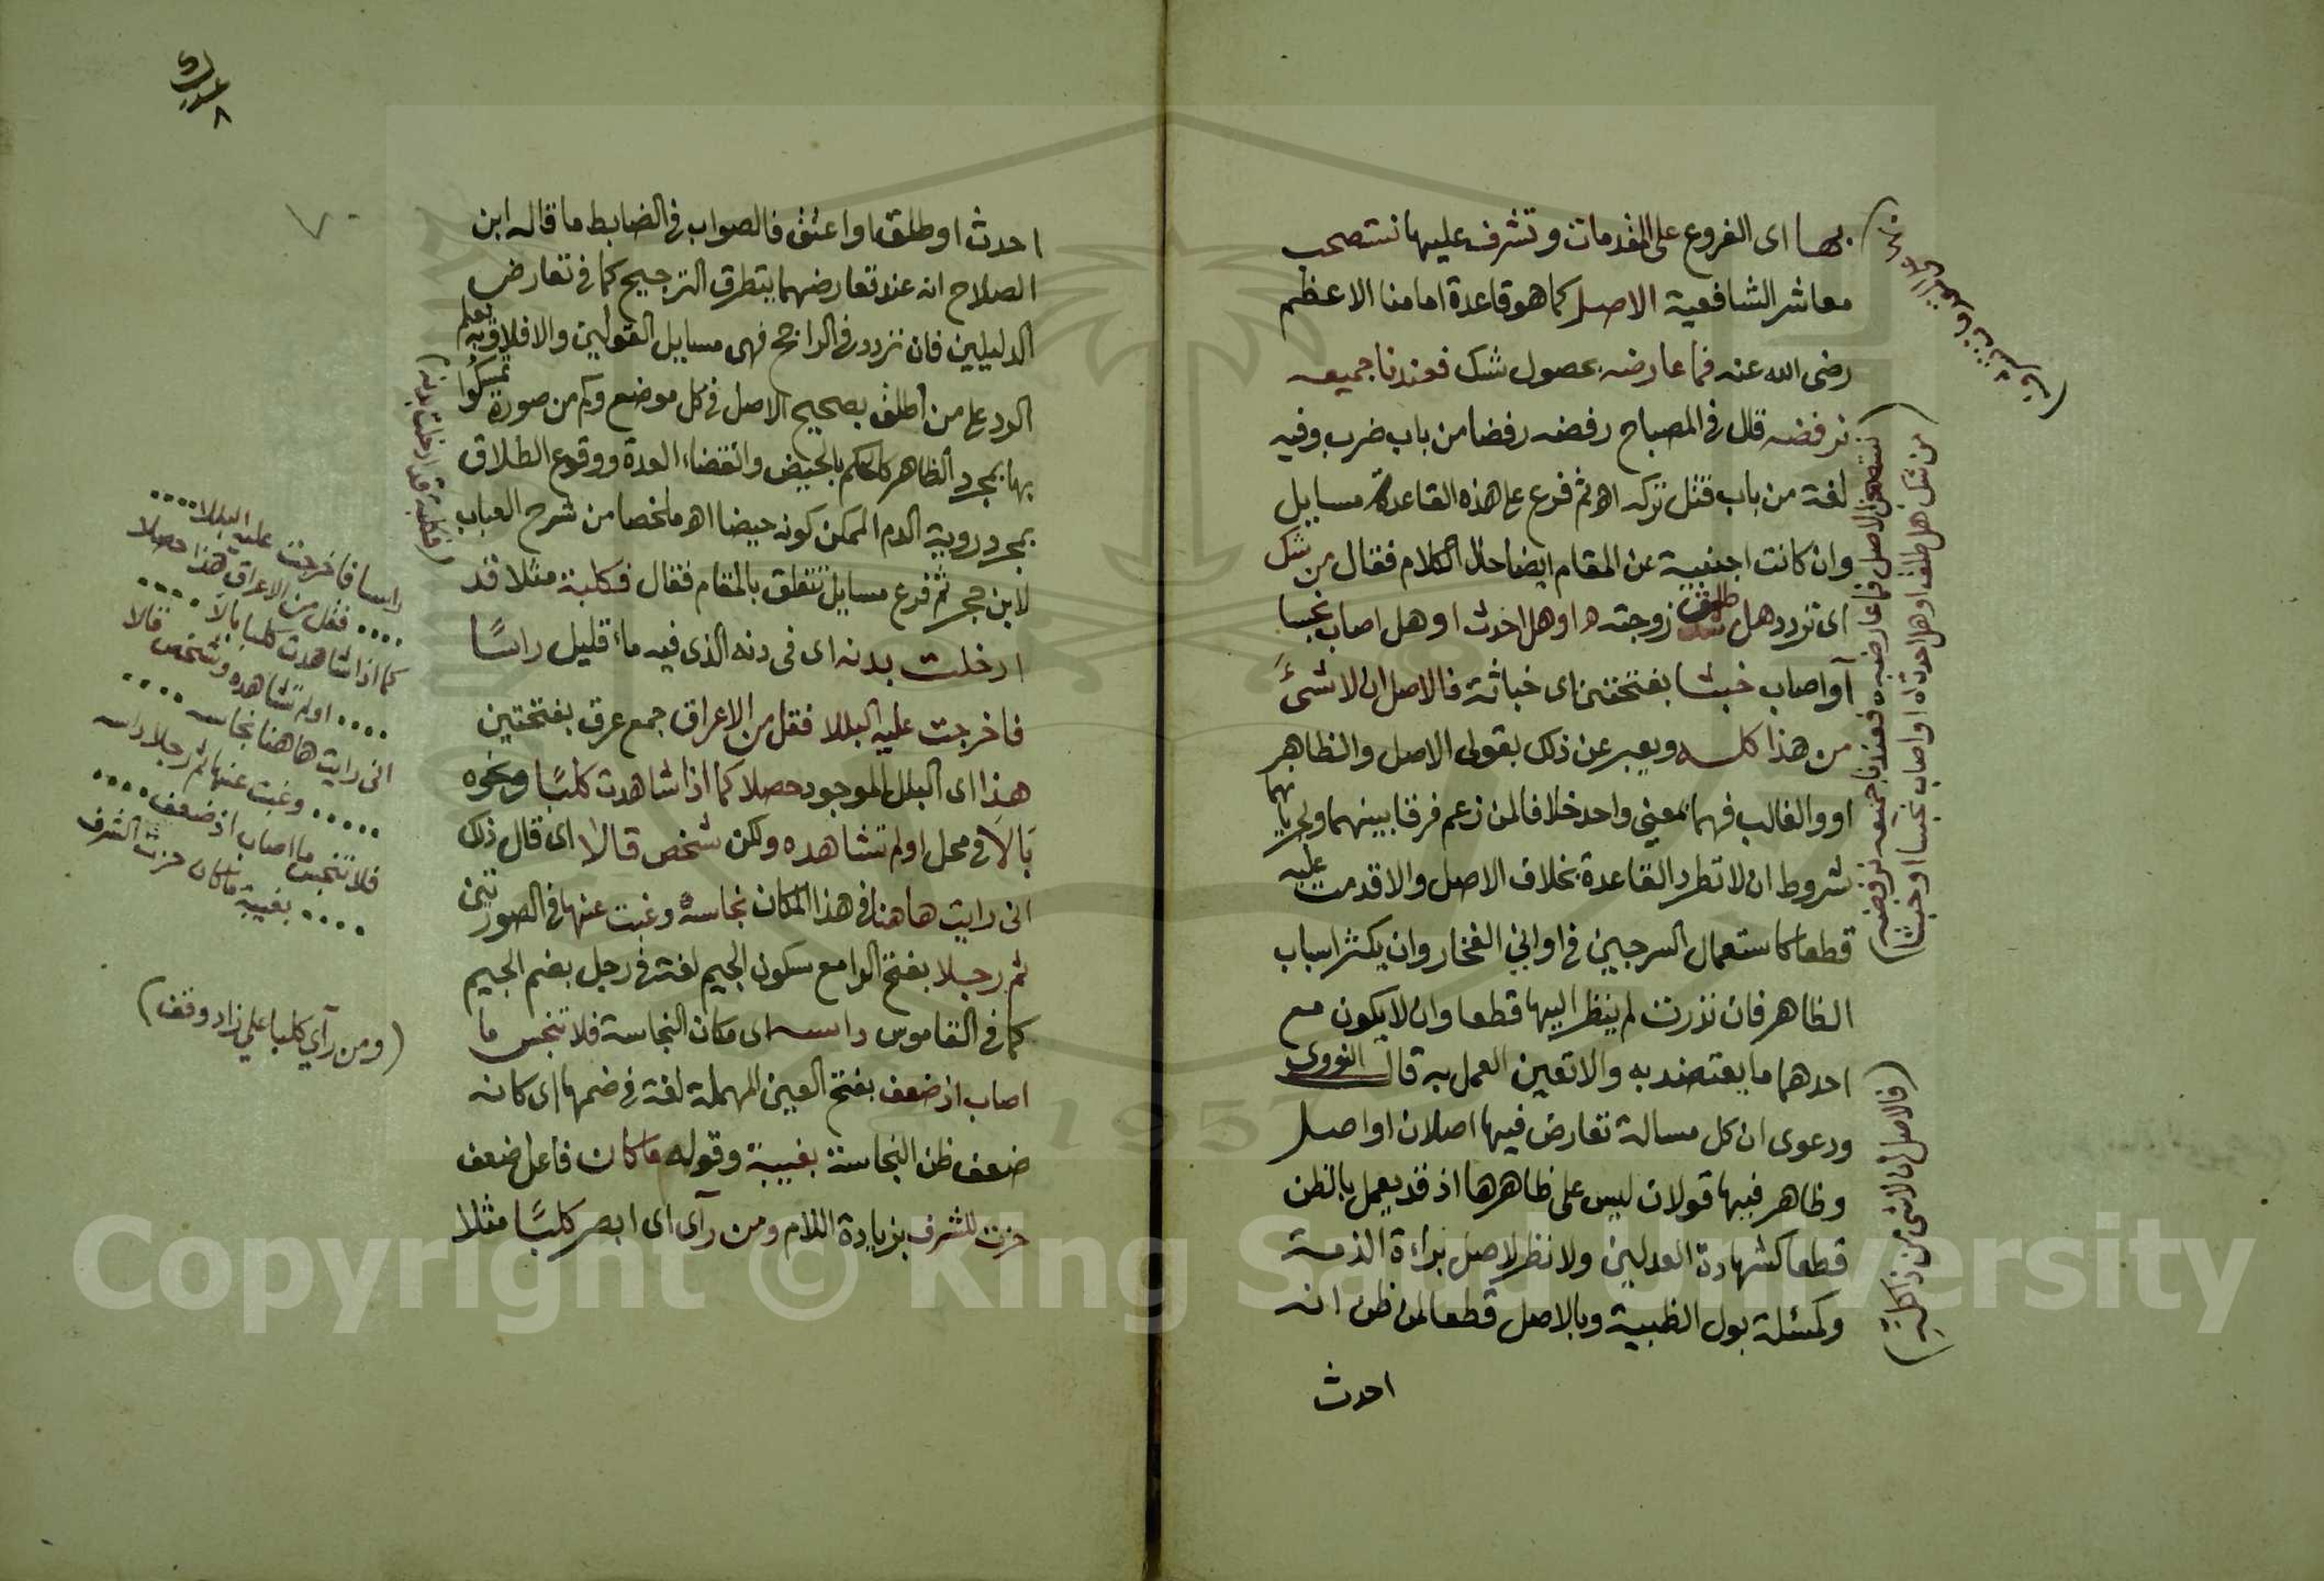 بها اى الفروع على المقدمات وتشرف عليها نستصحب
معاشر الشافعية الاصل كما هو قاعدة امامنا الاعظم
رضى الله عنه فما عارضه بحصول شك فعندنا جميعه
نرفضه قال فى المصباح رفضه رفضا من باب ضرب وفيه
لغة من باب قتل تركه اه ثم فرع على هذه القاعدة مسايل
وان كانت اجنبية عن المقام ايضا حال الكلام فقال من شك
اى تردد هل طلق زوجته ه او هل احدث او هل اصاب نجسا
آو اصاب خبثا بفتحتين اى خباثة فالاصل ان لا شئ
من هذا كله ويعبر عن ذلك بقولى الاصل والظاهر
او والغالب فهما بمعنى واحد خلافا لمن زعم فرقا بينهما ولجريانهما
شروط ان لا تطرد القاعدة بخلاف الاصل والا قدمت عليه
قطعا كاستعمال السرجين فى اوانى الفخار وان يكثر اسباب
الظاهر فان نذرت لم ينظر اليها قطعا وان لا يكون مع
احدهما ما يعتضد به والا تعين العمل به قال النووى
ودعوى ان كل مسالة تعارض فيها اصلان او اصل
وظاهر فيها قولان ليس على ظاهرها اذ قد يعمل بالظن
قطعا كشهادة العدلين ولا نظر لاصل براءة الذمة
وكمسئلة بول الظبية وبالاصل قطعا لمن ظن انه
احدث
نستصحب الاصل فما عارضه ه فعندنا جميعه نرفضه
من شك هل طلق او هل احدثا ه او اصاب نجسا او خبثا
(فالاصل ان لا شئ من ذا كله)
احدث او طلق او اعتق فالصواب فى الضابط ما قاله ابن
الصلاح انه عند تعارضهما يتطرق الترجيح كما فى تعارض
الدليلين فان تردد فى الراجح فهى مسايل القولين والا فلا وبه يعلم
الرد على من اطلق بصحيح الاصل فى كل موضع وكم من صورة تمسكوا
بها بمجرد الظاهر كالحكم بالحيض وانقضاء العدة ووقوع الطلاق
بمجرد روية الدم الممكن كونه حيضا اه ملخصا من شرح العباب
لابن حجر ثم فرع مسايل تتعلق بالمقام فقال فكلبة مثلا قد
ادخلت بدنه اى فى دنه الذى فيه ماء قليل راسًا
فاخرجت عليه البللا فقل من الاعراق جمع عرق بفتحتين
هذا اى البلل الموجود حصلا كما اذا شاهدت كلبًا ونحوه
بَالَا فى محل او لم تشاهده ولكن شخص قالا اى قال ذلك
انى رايت هاهنا فى هذا المكان نجاسة وغبت عنها فى الصورتين
ثم رجلا بفتح الرا مع سكون الجيم لغة فى رجل بضم الجيم
كما فى القاموس داسه اى مكان النجاسة فلا تنجس ما
اصاب اذ ضعف بفتح العين المهملة لغة فى ضمها اى كانه
ضعف ظن النجاسة بغيبة وقوله ما كان فاعل ضعف
حزت للشرف بزيادة اللام ومن رآى اى ابصر كلبًا مثلا
(فكلبة قد ادخلت بدنه)
راسا فاخرجت عليه البللا ....
.... فقل من الاعراق هذا حصلا
كما اذا شاهدت كلبا بالا ....
.... او لم تشاهده وشخص قالا
انى رايت هاهنا نجاسه ....
.... وغبت عنها ثم رجلا داسه
فلا تنجس ما اصاب اذ ضعف ....
.... بغيبة ما كان حزت الشرف
(ومن رآى كلبا على زاد وقف)
Copyright © King Saud University
1957